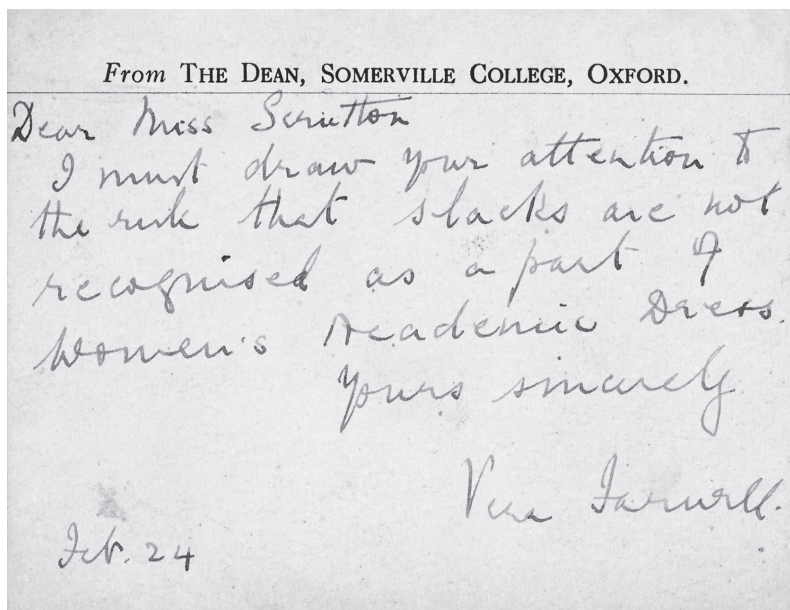 From THE DEAN, SOMERVILLE COLLEGE, OXFORD.
Dear Miss Scrutton
I must draw your attention to
the rule that slacks are not
recognised as a part of
Women's Academic Dress.
Yours sincerely
Vera Farnell.
Feb. 24